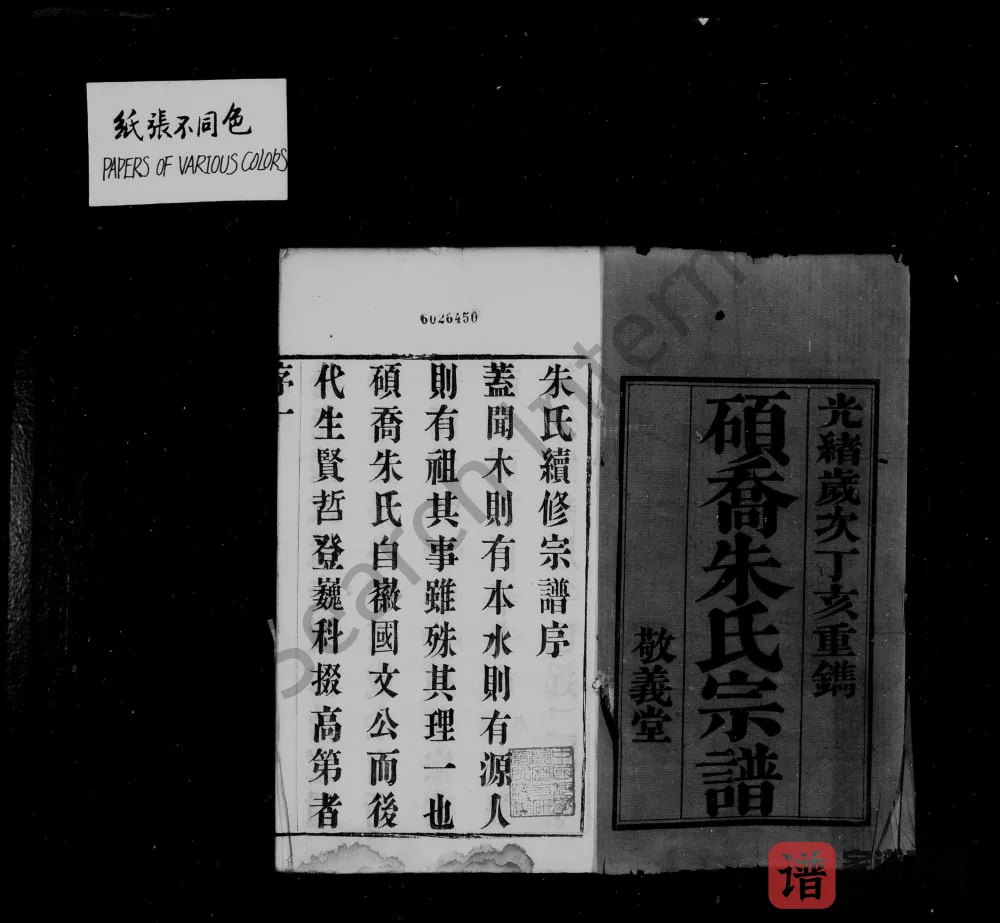 紙張不同色
PAPERS OF VARIOUS COLORS
光緒歲次丁亥重鐫
碩喬朱氏宗譜
敬義堂
6026450
朱氏續修宗譜序
蓋聞木則有本水則有源人
則有祖其事雖殊其理一也
碩喬朱氏自徽國文公而後
代生賢哲登巍科掇高第者
序一
Search Intern
谱